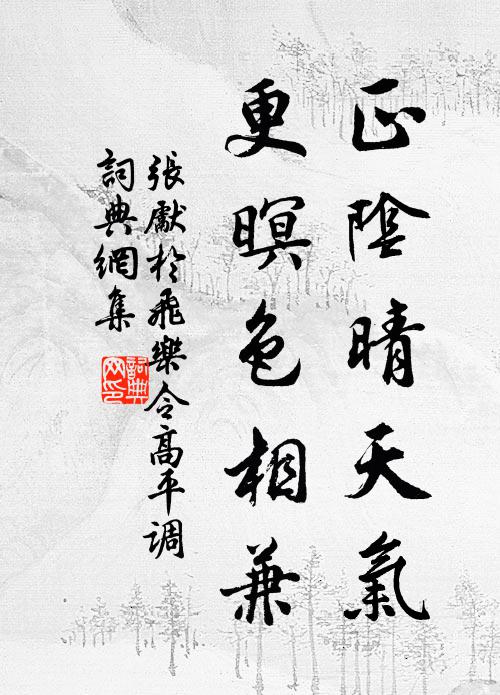 正陰晴天氣
更暝色相兼
張獻於飛樂令高平调
詞典網集
詞典网印